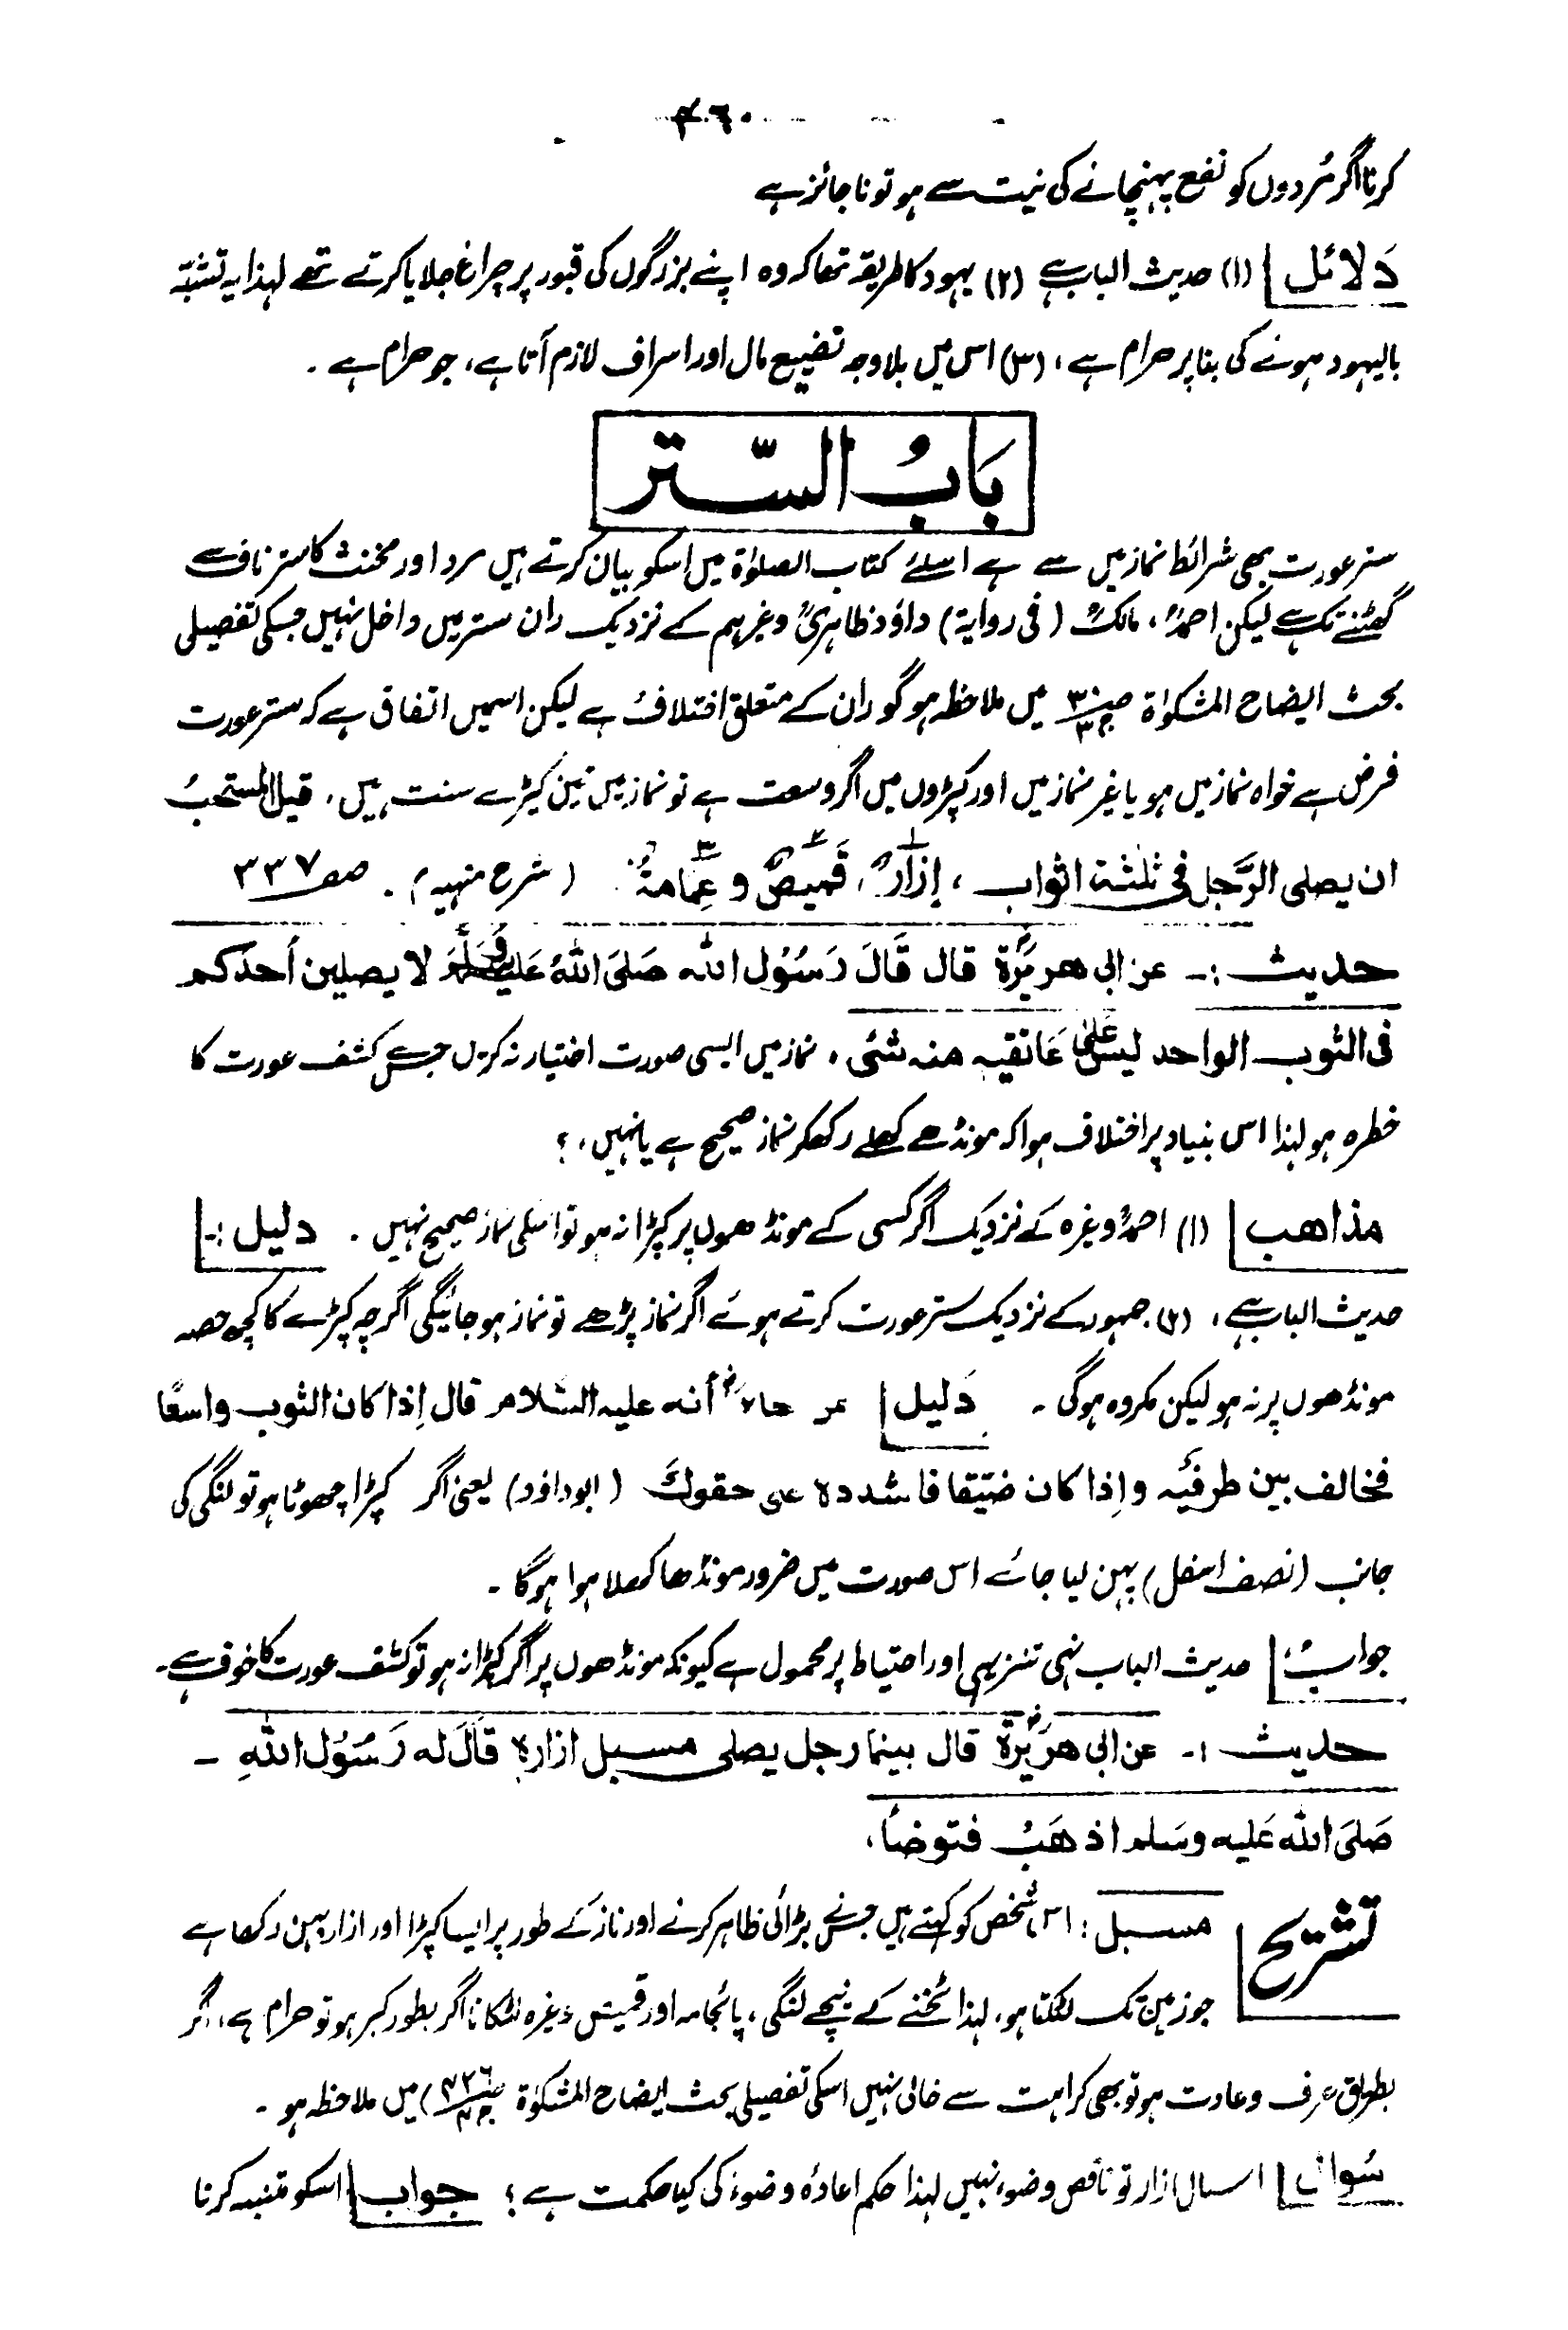 ۴۶۰
کرنا اگر مُردوں کو نفع پہنچانے کی نیت سے ہو تو ناجائز ہے
دَلائل (۱) حدیث الباب ہے (۲) یہود کا طریقہ تھا کہ وہ اپنے بزرگوں کی قبور پر چراغ جلایا کرتے تھے لہذا یہ تشبّہ
بالیہود ہونے کی بنا پر حرام ہے، (۳) اس میں بلاوجہ تضییع مال اور اسراف لازم آتا ہے، جو حرام ہے ۔
بَابُ السّتر
ستر عورت بھی شرائط نماز میں سے ہے اسلئے کتاب الصلوٰۃ میں اسکو بیان کرتے ہیں مرد اور مخنث کا ستر ناف سے
گھٹنے تک ہے لیکن احمدؒ، مالکؒ (فی روایة) داؤد ظاہریؒ وغیرہم کے نزدیک ران ستر میں داخل نہیں جسکی تفصیلی
بحث ایضاح المشکوٰۃ میں ملاحظہ ہو گو ران کے متعلق اختلاف ہے لیکن اسمیں اتفاق ہے کہ ستر عورت
فرض ہے خواہ نماز میں ہو یا غیر نماز میں اور کپڑوں میں اگر وسعت ہے تو نماز میں تین کپڑے سنت ہیں، قیل المستحبُ
ان یصلی الرَّجل فی ثلٰثة اثواب ، إزارٌ، قَمیصٌ و عِمَامةٌ (شرح منہیہ) ۔ صف ۳۳۷
حدیث :۔ عن ابی ھریرَۃؓ قال قَالَ رَسُوْل اللّٰہ صَلیَ اللّٰہُ عَلیہِ وَسَلَّمَ لا یصلین أحدکم
فی الثوب الواحد لیس علیٰ عَاتقیه منه شئی ، نماز میں ایسی صورت اختیار نہ کریں جس سے کشف عورت کا
خطرہ ہو لہذا اس بنیاد پر اختلاف ہوا کہ مونڈھے کھلے رکھکر نماز صحیح ہے یا نہیں، ؟
مذاھب (۱) احمدؒ وغیرہ کے نزدیک اگر کسی کے مونڈھوں پر کپڑا نہ ہو تو اسکی نماز صحیح نہیں ۔ دلیل :۔
حدیث الباب ہے، (۲) جمہور کے نزدیک ستر عورت کرتے ہوئے اگر نماز پڑھے تو نماز ہو جائیگی اگرچہ کپڑے کا کچھ حصہ
مونڈھوں پر نہ ہو لیکن مکروہ ہوگی ۔ دَلیل عن جابرؓ أنه علیه السّلام قال إذا کان الثوب واسعًا
فخالف بین طرفَیْه و إذا کان ضیّقا فاشدده علی حقوكَ (ابوداؤد) یعنی اگر کپڑا چھوٹا ہو تو لنگی کی
جانب (نصف اسفل) پہن لیا جائے اس صورت میں ضرور مونڈھا کھلا ہوا ہوگا ۔
جوابؒ حدیث الباب نہی تنزیہی اور احتیاط پر محمول ہے کیونکہ مونڈھوں پر اگر کپڑا نہ ہو تو کشف عورت کا خوف ہے۔
حدیث :۔ عن ابی ھریرَۃؓ قال بینما رجل یصلی مسبل ازارہ قَالَ له رَسُوْل اللّٰہِ ۔
صَلیَ اللّٰہ عَلیہ وسَلم اذھَبْ فتوضأ،
تشریح مسبل : اس شخص کو کہتے ہیں جس نے بڑائی ظاہر کرنے اور ناز کے طور پر ایسا کپڑا اور ازار پہن رکھا ہے
جو زمین تک لٹکتا ہو، لہذا ٹخنے کے نیچے لنگی، پائجامہ اور قمیص وغیرہ لٹکانا اگر بطور کبر ہو تو حرام ہے، اگر
بطریق عرف و عادت ہو تو بھی کراہت سے خالی نہیں اسکی تفصیلی بحث ایضاح المشکوٰۃ میں ملاحظہ ہو ۔
سُوال اسبال ازار تو ناقص وضوء نہیں لہذا حکم اعادۂ وضوء کی کیا حکمت ہے ؟ جواب اسکو متنبہ کرنا